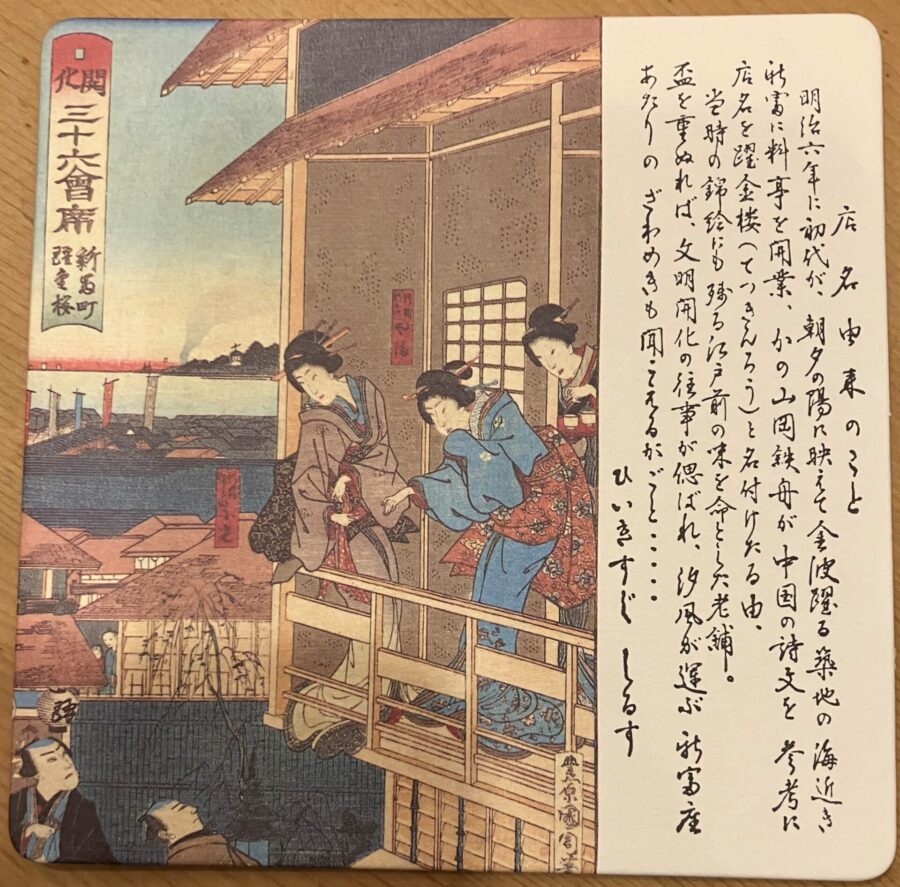 店名由来のこと
明治六年に初代が、朝夕の陽に映えて金波躍る築地の海近き
新富に料亭を開業、かの山岡鉄舟が中国の詩文を参考に
店名を躍金楼(てっきんろう)と名付けたる由。
当時の錦絵にも残る江戸前の味を命とした老舗。
盃を重ぬれば、文明開化の往事が偲ばれ、汐風が運ぶ新富座
あたりのざわめきも聞こえるがごと・・・・・
ひいきすじ しるす
開化
三十六會席
新冨町
躍金楼
豊原國周筆